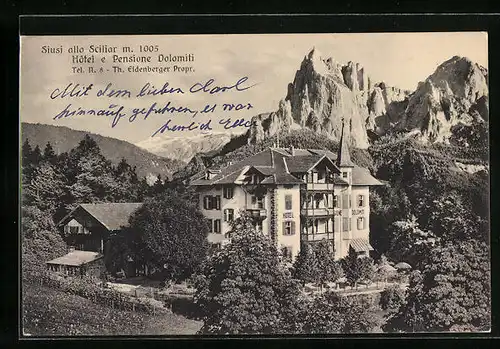 Siusi allo Sciliar m. 1005
Hôtel e Pensione Dolomiti
Tel. N. 8 - Th. Eidenberger Propr.
Mit dem lieben Carl
hinauf gefahren, es war
herrlich
HOTEL DOLOMITI